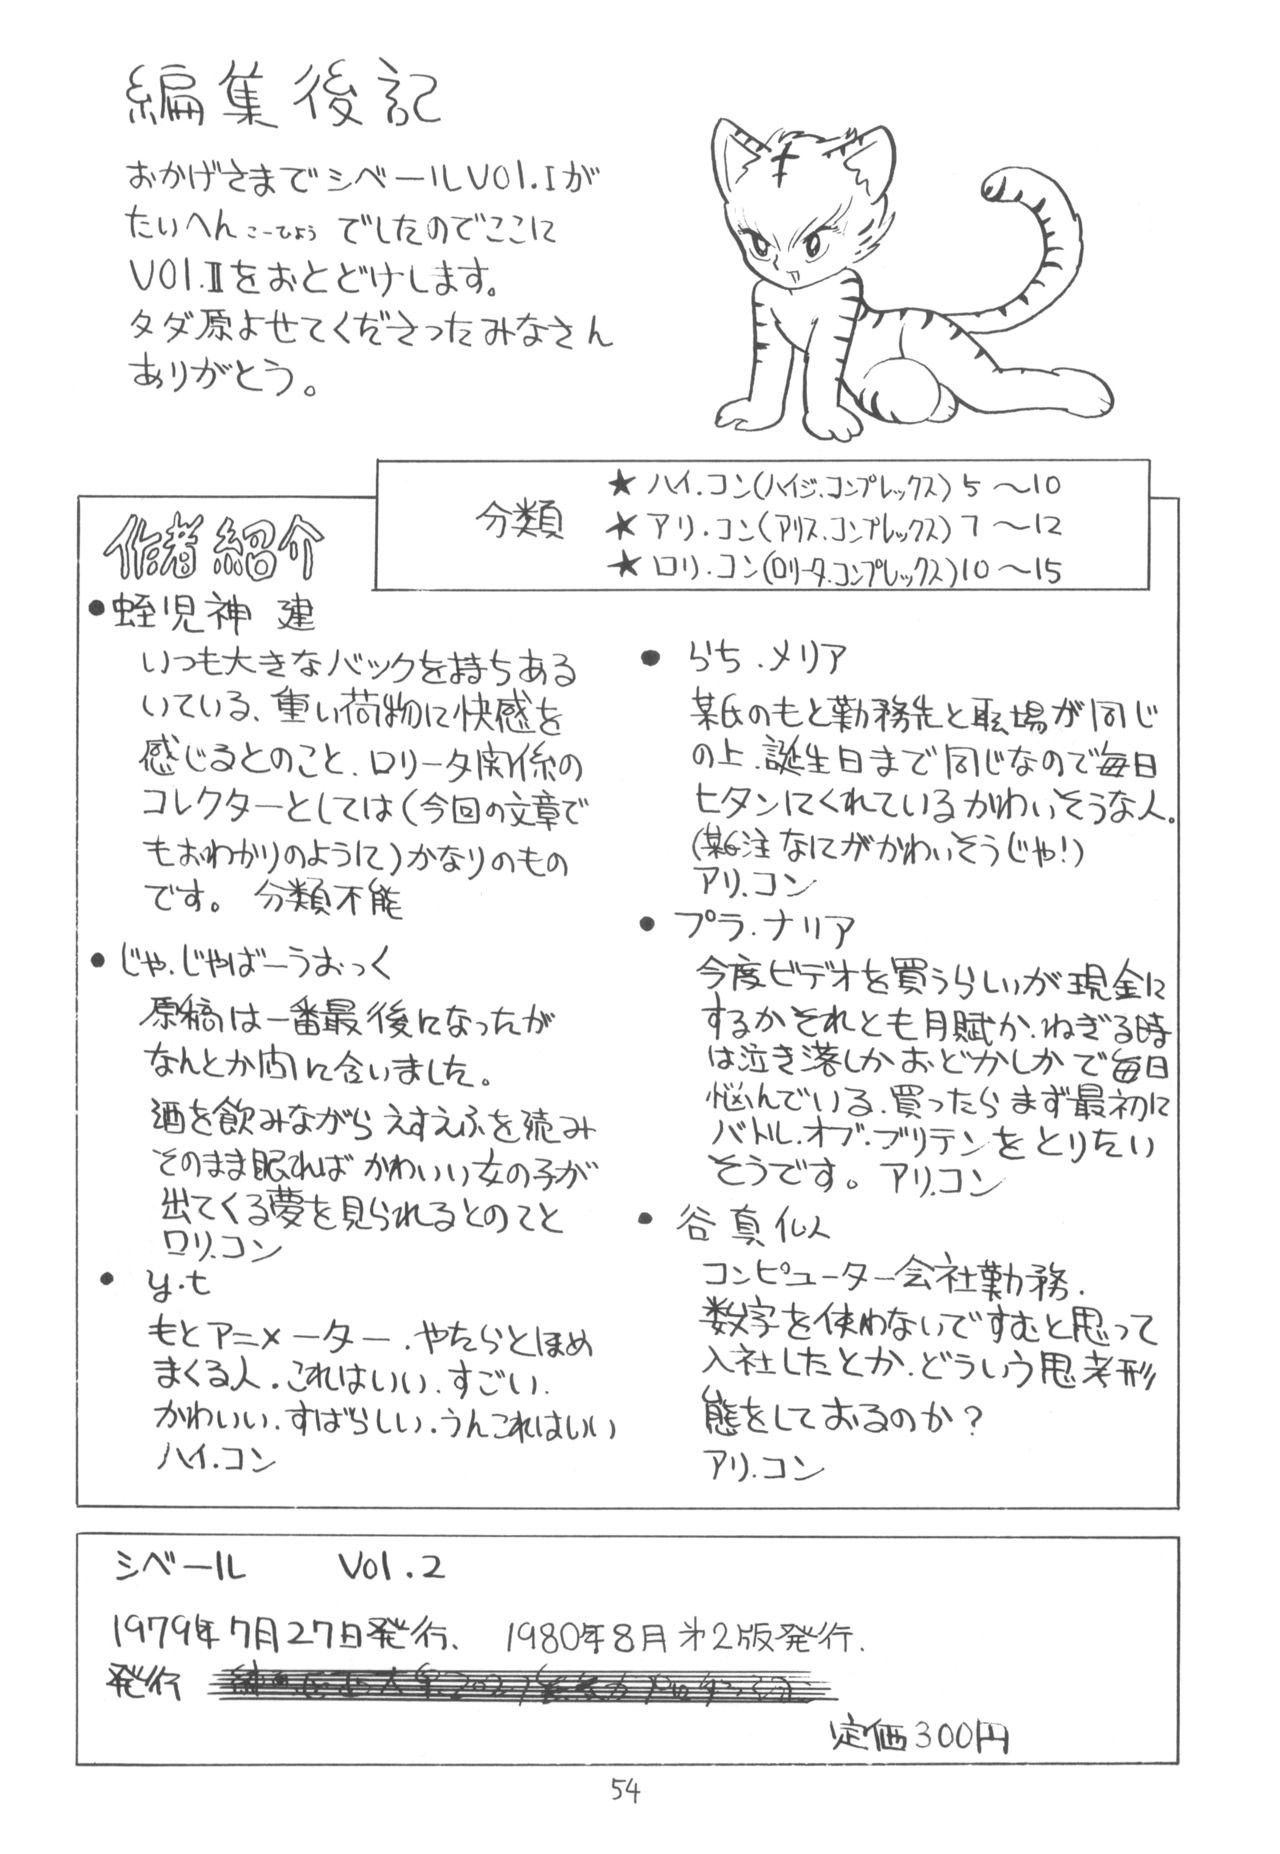 編集後記
おかげさまでシベールVOl.Iが
たいへん こーひょう でしたのでここに
VOl.IIをおとどけします。
タダ原よせてくださったみなさん
ありがとう。
分類
★ ハイ.コン(ハイジ.コンプレックス) 5 ～10
★ アリ.コン(アリス.コンプレックス) 7 ～12
★ ロリ.コン(ロリータ.コンプレックス)10 ～15
作者紹介
● 蛭児神 建
いつも大きなバックを持ちある
いている、重い荷物に快感を
感じるとのこと、ロリータ関係の
コレクターとしては(今回の文章で
もおわかりのように)かなりのもの
です。 分類不能
● じゃ.じゃばーうおっく
原稿は一番最後になったが
なんとか間に合いました。
酒を飲みながらえすえふを読み
そのまま眠ればかわいい女の子が
出てくる夢を見られるとのこと
ロリ.コン
● y.t
もとアニメーター.やたらとほめ
まくる人.これはいい.すごい.
かわいい.すばらしい.うんこれはいい
ハイ.コン
● らち.メリア
某氏のもと勤務先と職場が同じ
の上.誕生日まで同じなので毎日
ヒタンにくれているかわいそうな人。
(某氏注 なにがかわいそうじゃ!)
アリ.コン
● プラ.ナリア
今度ビデオを買うらしいが現金に
するかそれとも月賦か.ねぎる時
は泣き落しかおどかしかで毎日
悩んでいる.買ったらまず最初に
バトル.オブ.ブリテンをとりたい
そうです。 アリ.コン
● 谷 真似人
コンピューター会社勤務.
数字を使わないですむと思って
入社したとか.どういう思考形
態をしておるのか?
アリ.コン
シベール Vol.2
1979年7月27日発行、 1980年8月才2版発行.
発行
定価300円
54